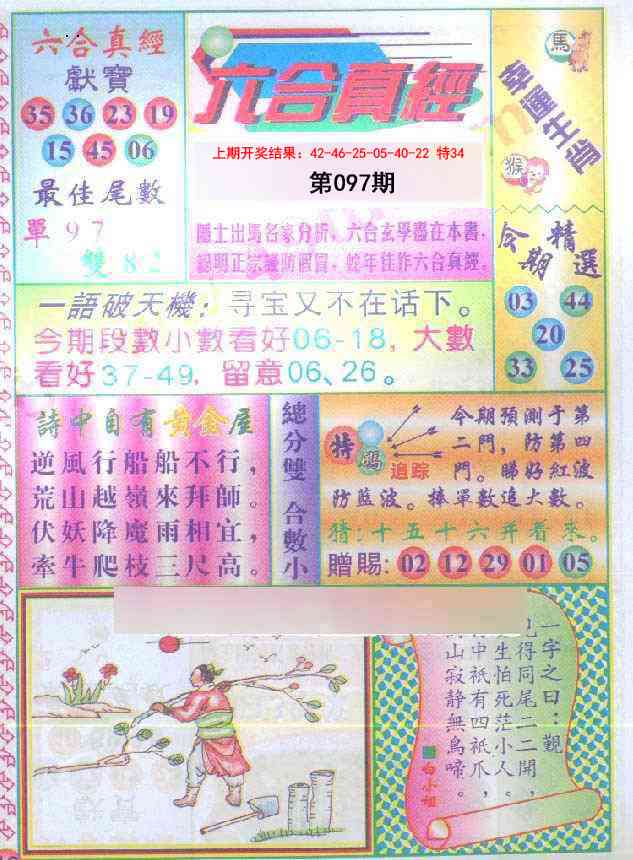 六合真經
獻寶
35 36 23 19
15 45 06
最佳尾數
單 9 7
雙 8 2
六合真經
上期开奖结果：42-46-25-05-40-22 特34
第097期
隱士出馬名家分析，六合玄學盡在本書，
聰明正宗謹防假冒，蛇年佳作六合真經。
馬
幸運生肖
猴
今期精選
03 44
20
33 25
一語破天機：寻宝又不在话下。
今期段數小數看好06-18，大數
看好37-49，留意06、26。
詩中自有黄金屋
逆風行船船不行，
荒山越嶺來拜師。
伏妖降魔雨相宜，
牽牛爬枝三尺高。
總分雙 合數小
特碼
追踪
今期預測于第
二門，防第四
門。睇好紅波
防藍波。捧單數追大數。
猜：十五十六开看来。
贈賜：02 12 29 01 05
一字之曰：觀
得同尾二二開，
生怕死茫小人。
中祇有四祇爪，
山寂静無鳥啼。
白小姐